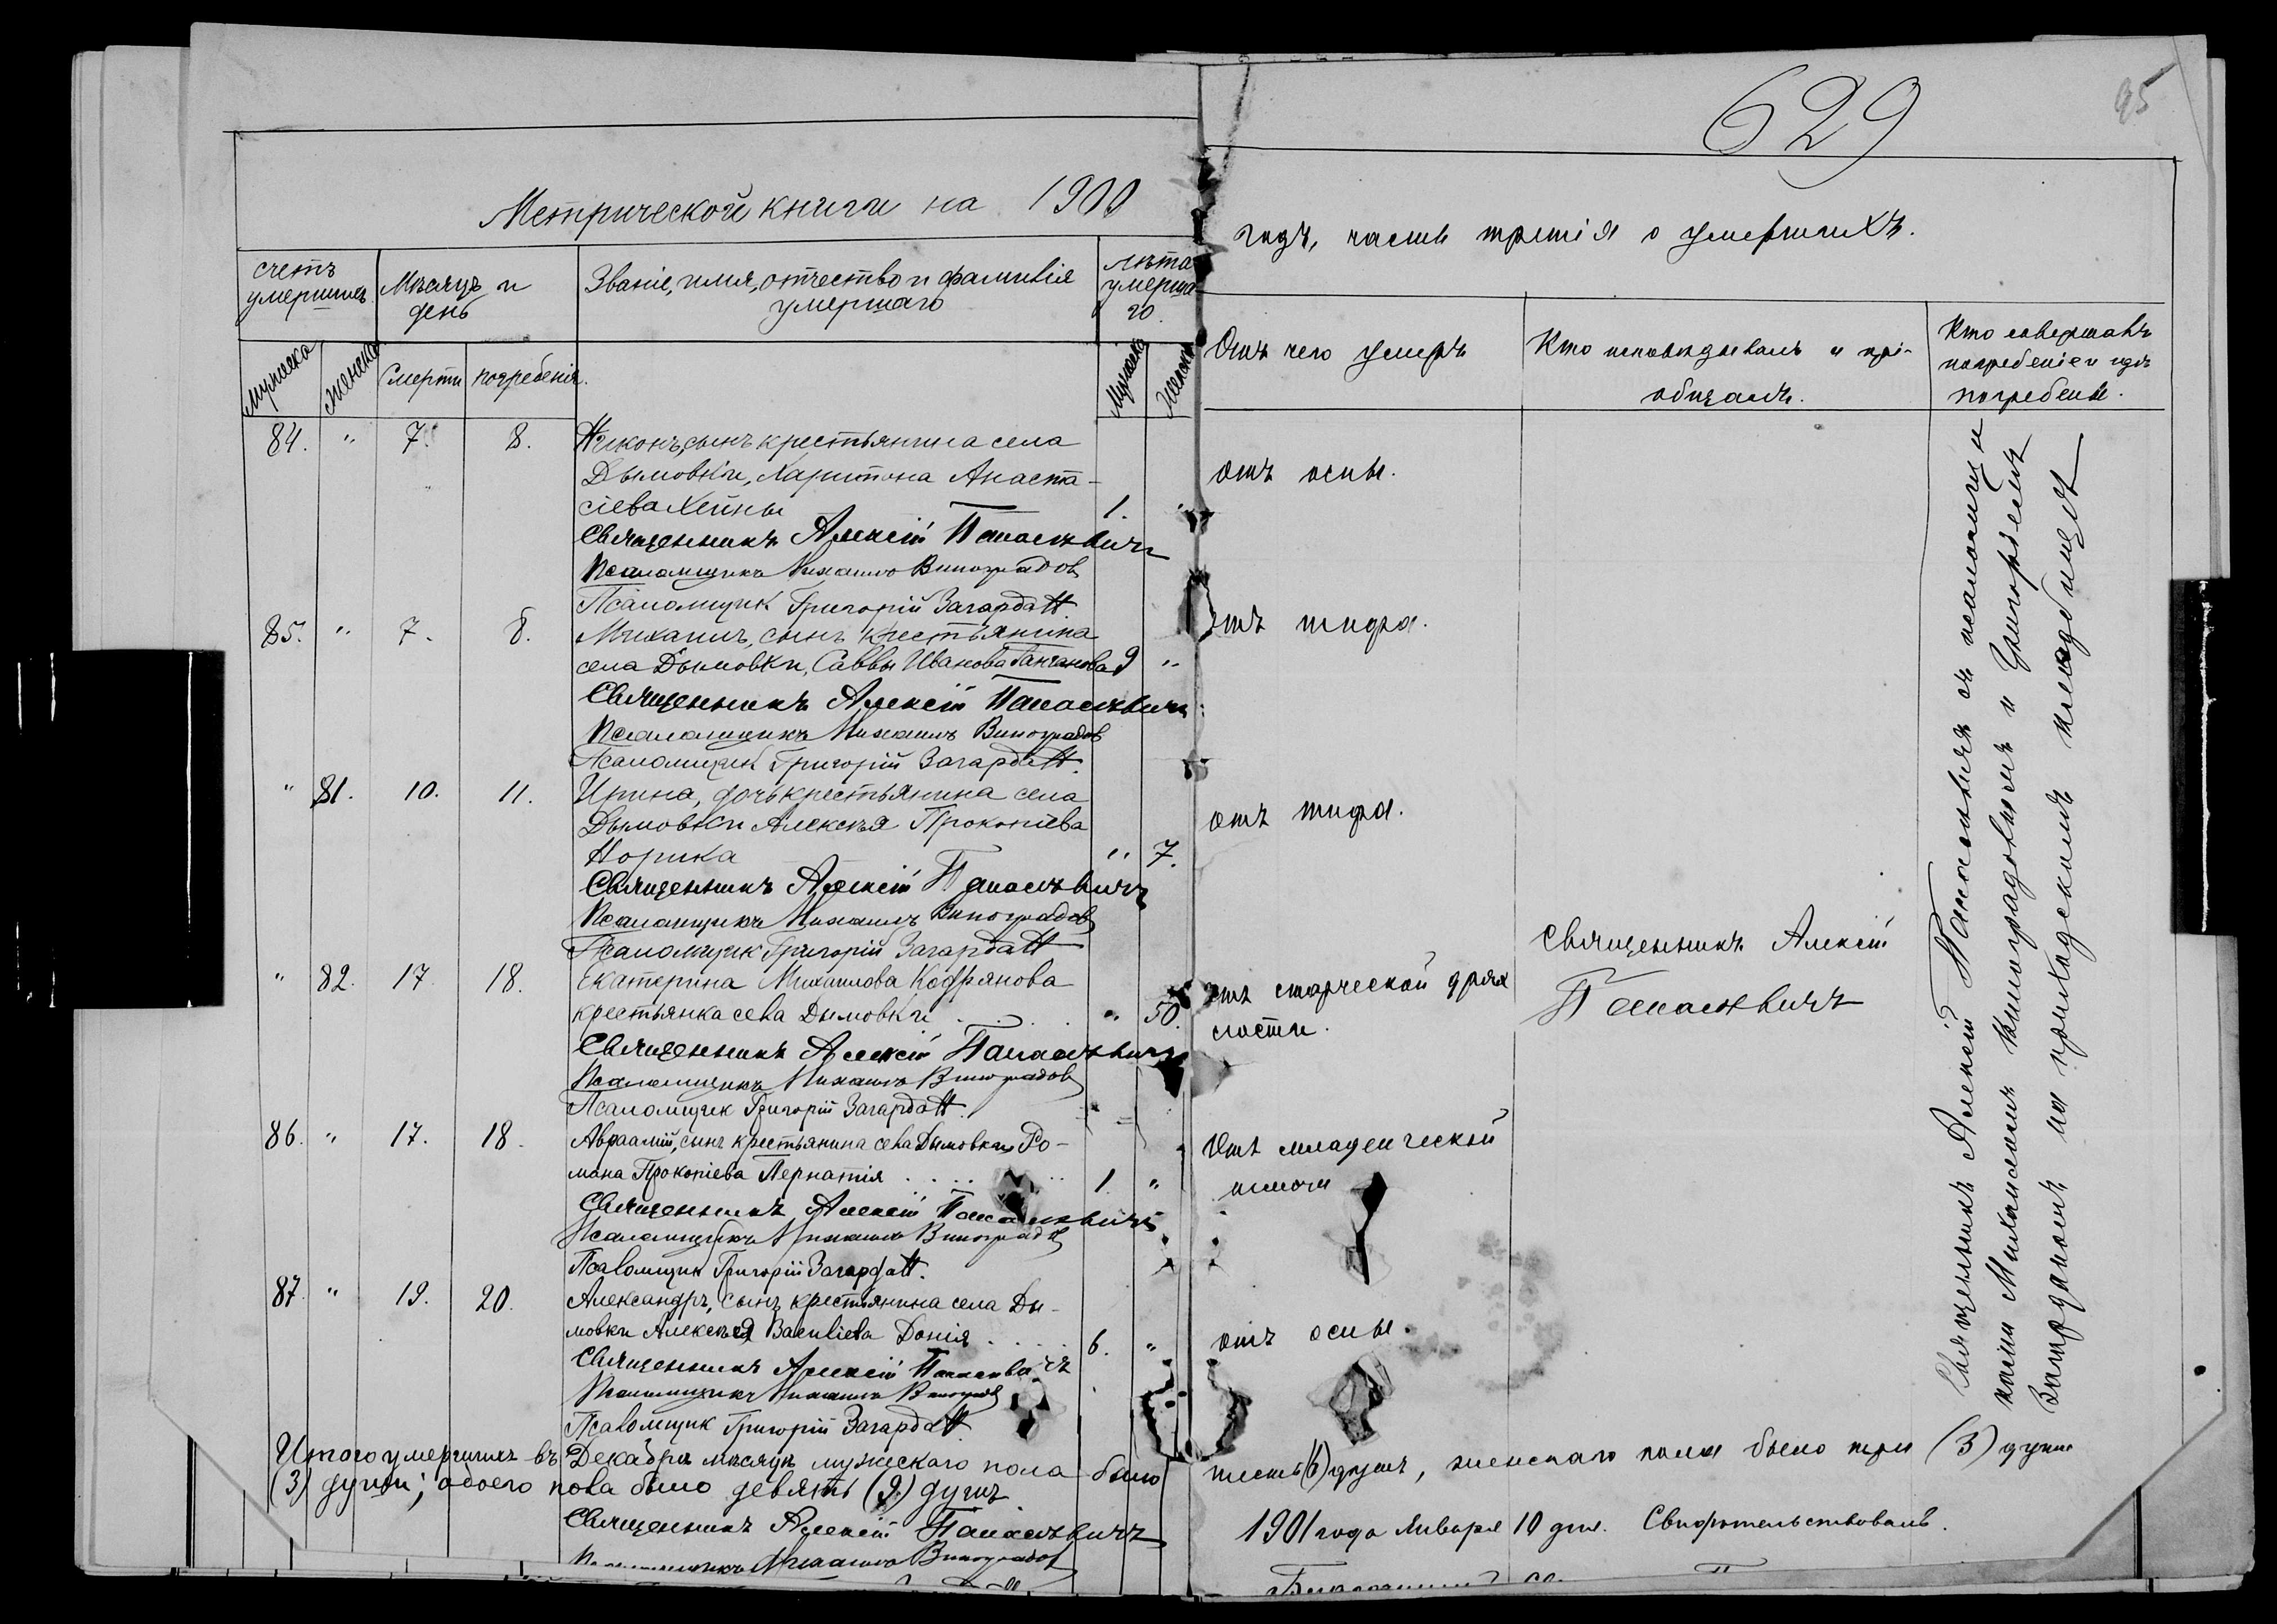 629
95
Метрической книги на 1900
годъ, части третія о умершихъ.
счетъ умершихъ
Мѣсяцъ и день
Званіе, имя, отчество и фамилія умершаго
лѣта умершаго
Отъ чего умеръ
Кто исповѣдывалъ и пріобщалъ.
Кто совершалъ погребеніе и гдѣ погребены.
мужеска
женска
Смерти
погребенія.
Мужеска
Женска
84. " 7. 8. Никонъ, сынъ крестьянина села
Дымовки, Харитона Анаста-
сіева Хейны 1. "
отъ оспы.
Священникъ Алексій Танасевичъ
Псаломщикъ Михаилъ Виноградовъ
Псаломщик Григорій
85. " 7. 8. Михаилъ, сынъ крестьянина
села Дымовки, Саввы Иванова 9 "
отъ тифа.
Священникъ Алексій Танасевичъ
Псаломщикъ Михаилъ Виноградовъ
Псаломщик Григорій
" 81. 10. 11. Ирина, дочь крестьянина села
Дымовки Алексѣя Прокопіева
Норика " 7.
отъ тифа.
Священникъ Алексій Танасевичъ
Псаломщикъ Михаилъ Виноградовъ
Псаломщик Григорій
" 82. 17. 18. Екатерина Михаилова Кодрянова
крестьянка села Дымовки . . . . " 50.
отъ старческой дрях
лости.
Священникъ Алексій
Танасевичъ
Священникъ Алексій Танасевичъ
Псаломщикъ Михаилъ Виноградовъ
Псаломщик Григорій
86. " 17. 18. Авраамій, сынъ крестьянина села Дымовки Ро-
мана Прокопіева . . . . 1. "
Отъ младенческой
Священникъ Алексій Танасевичъ
Псаломщикъ Михаилъ Виноградовъ
Псаломщик Григорій
87. " 19. 20. Александръ, сынъ крестьянина села Ды-
мовки Алексѣя Василіева Донія . . . . 6. "
отъ оспы.
Священникъ Алексій Танасевичъ
Псаломщикъ Михаилъ Виноградовъ
Псаломщик Григорій
Священникъ Алексій Танасевичъ съ псаломщи
ками Михаиломъ Виноградовымъ и Григоріемъ
на приходскомъ кладбищѣ
Итого умершихъ въ Декабрѣ мѣсяцѣ мужескаго пола было шесть (6) душъ, женскаго пола было три (3) души
(3) души; обоего пола было девять (9) душъ.
Священникъ Алексій Танасевичъ
Псаломщикъ Михаилъ Виноградовъ
1901 года Января 10 дня. Свидѣтельствовалъ.